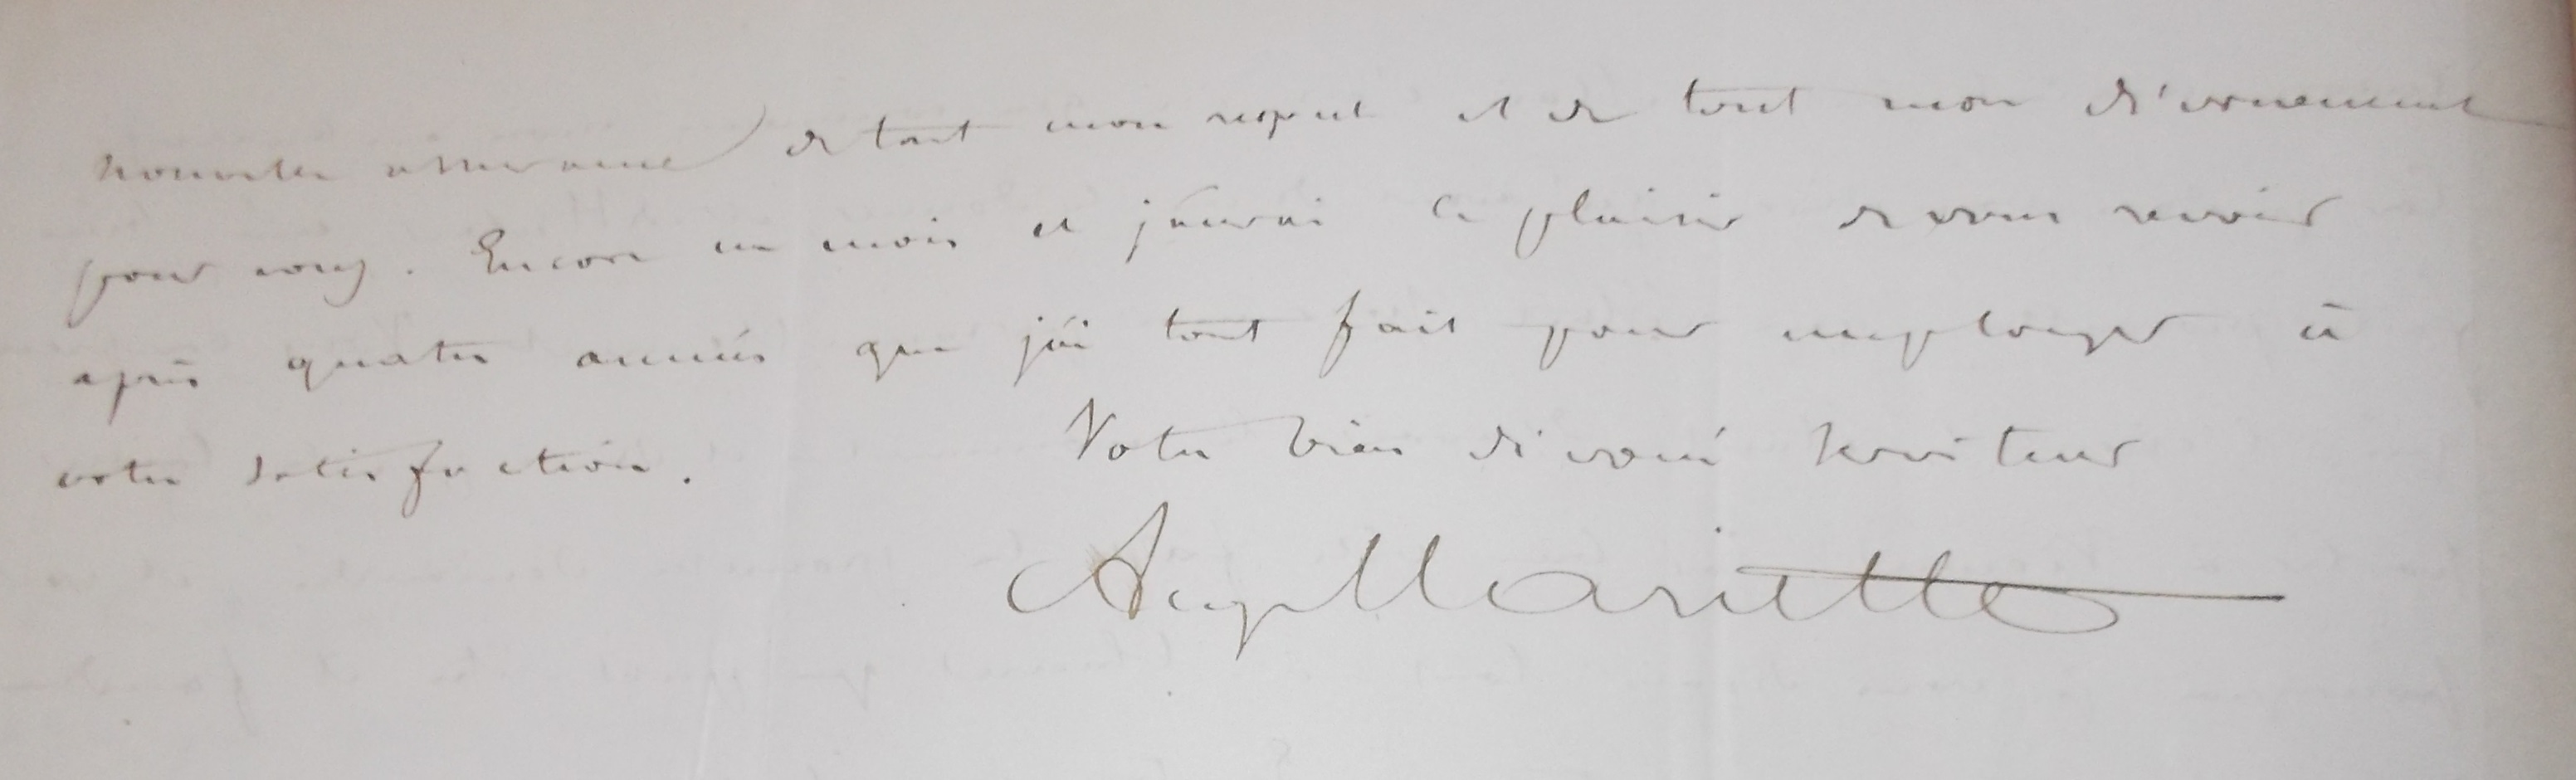 nouvelle assurance de tout mon respect et de tout mon dévouement
pour vous. Encore un mois et j'aurai le plaisir de vous revoir
après quatre années que j'ai tout fait pour employer à
votre satisfaction.
Votre bien dévoué serviteur
Aug Mariette